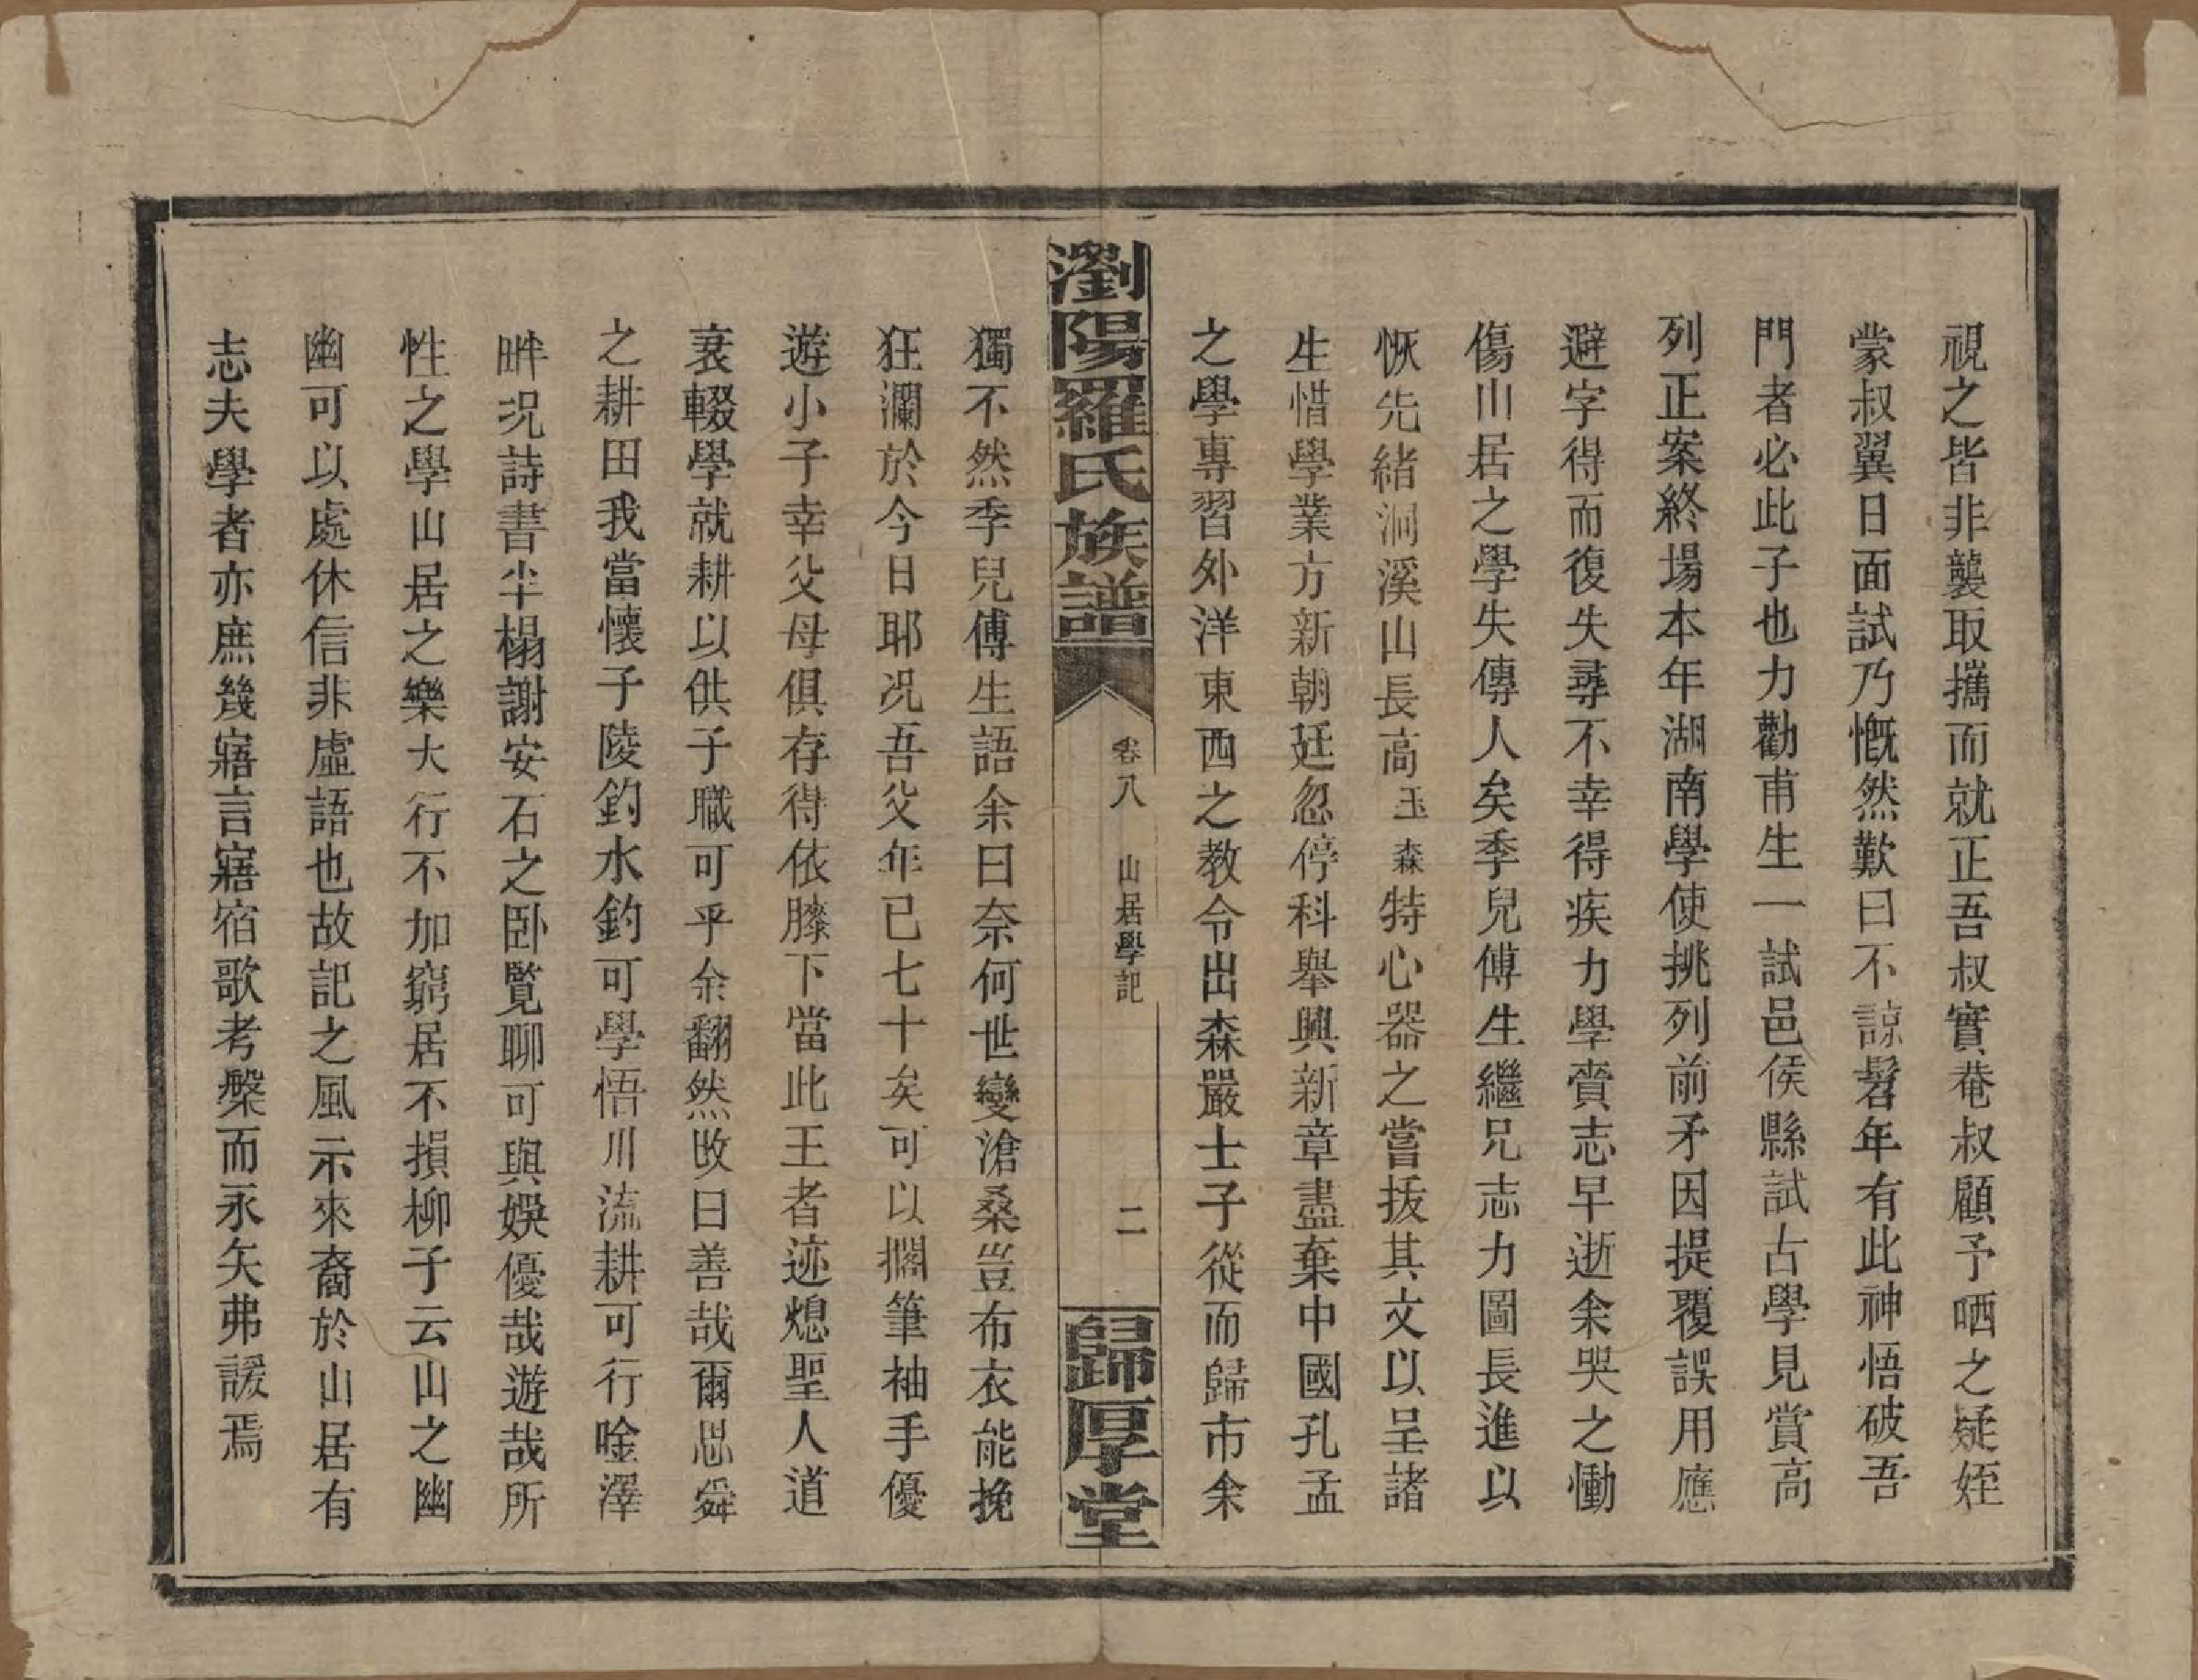 視之皆非襲取攜而就正吾叔實菴叔顧予哂之疑姪
蒙叔翼日面試乃慨然歎曰不諒髫年有此神悟破吾
門者必此子也力勸甫生一試邑侯縣試古學見賞高
列正案終場本年湖南學使挑列前矛因提覆誤用應
避字得而復失尋不幸得疾力學賫志早逝余哭之慟
傷山居之學失傳人矣季兒傅生繼兄志力圖長進以
恢先緒洞溪山長高玉森特心器之嘗拔其文以呈諸
生惜學業方新朝廷忽停科舉興新章盡棄中國孔孟
之學專習外洋東西之教令出森嚴士子從而歸市余
瀏陽羅氏族譜 卷八 山居學記 二 歸厚堂
獨不然季兒傅生語余曰奈何世變滄桑豈布衣能挽
狂瀾於今日耶况吾父年已七十矣可以擱筆袖手優
遊小子幸父母俱存得依膝下當此王者迹熄聖人道
衰輟學就耕以供子職可乎余翻然改曰善哉爾思舜
之耕田我當懷子陵釣水釣可學悟川流耕可行唫澤
畔况詩書半榻謝安石之卧覽聊可與娛優哉遊哉所
性之學山居之樂大行不加窮居不損柳子云山之幽
幽可以處休信非虛語也故記之風示來裔於山居有
志夫學者亦庶幾寤言寤宿歌考槃而永矢弗諼焉